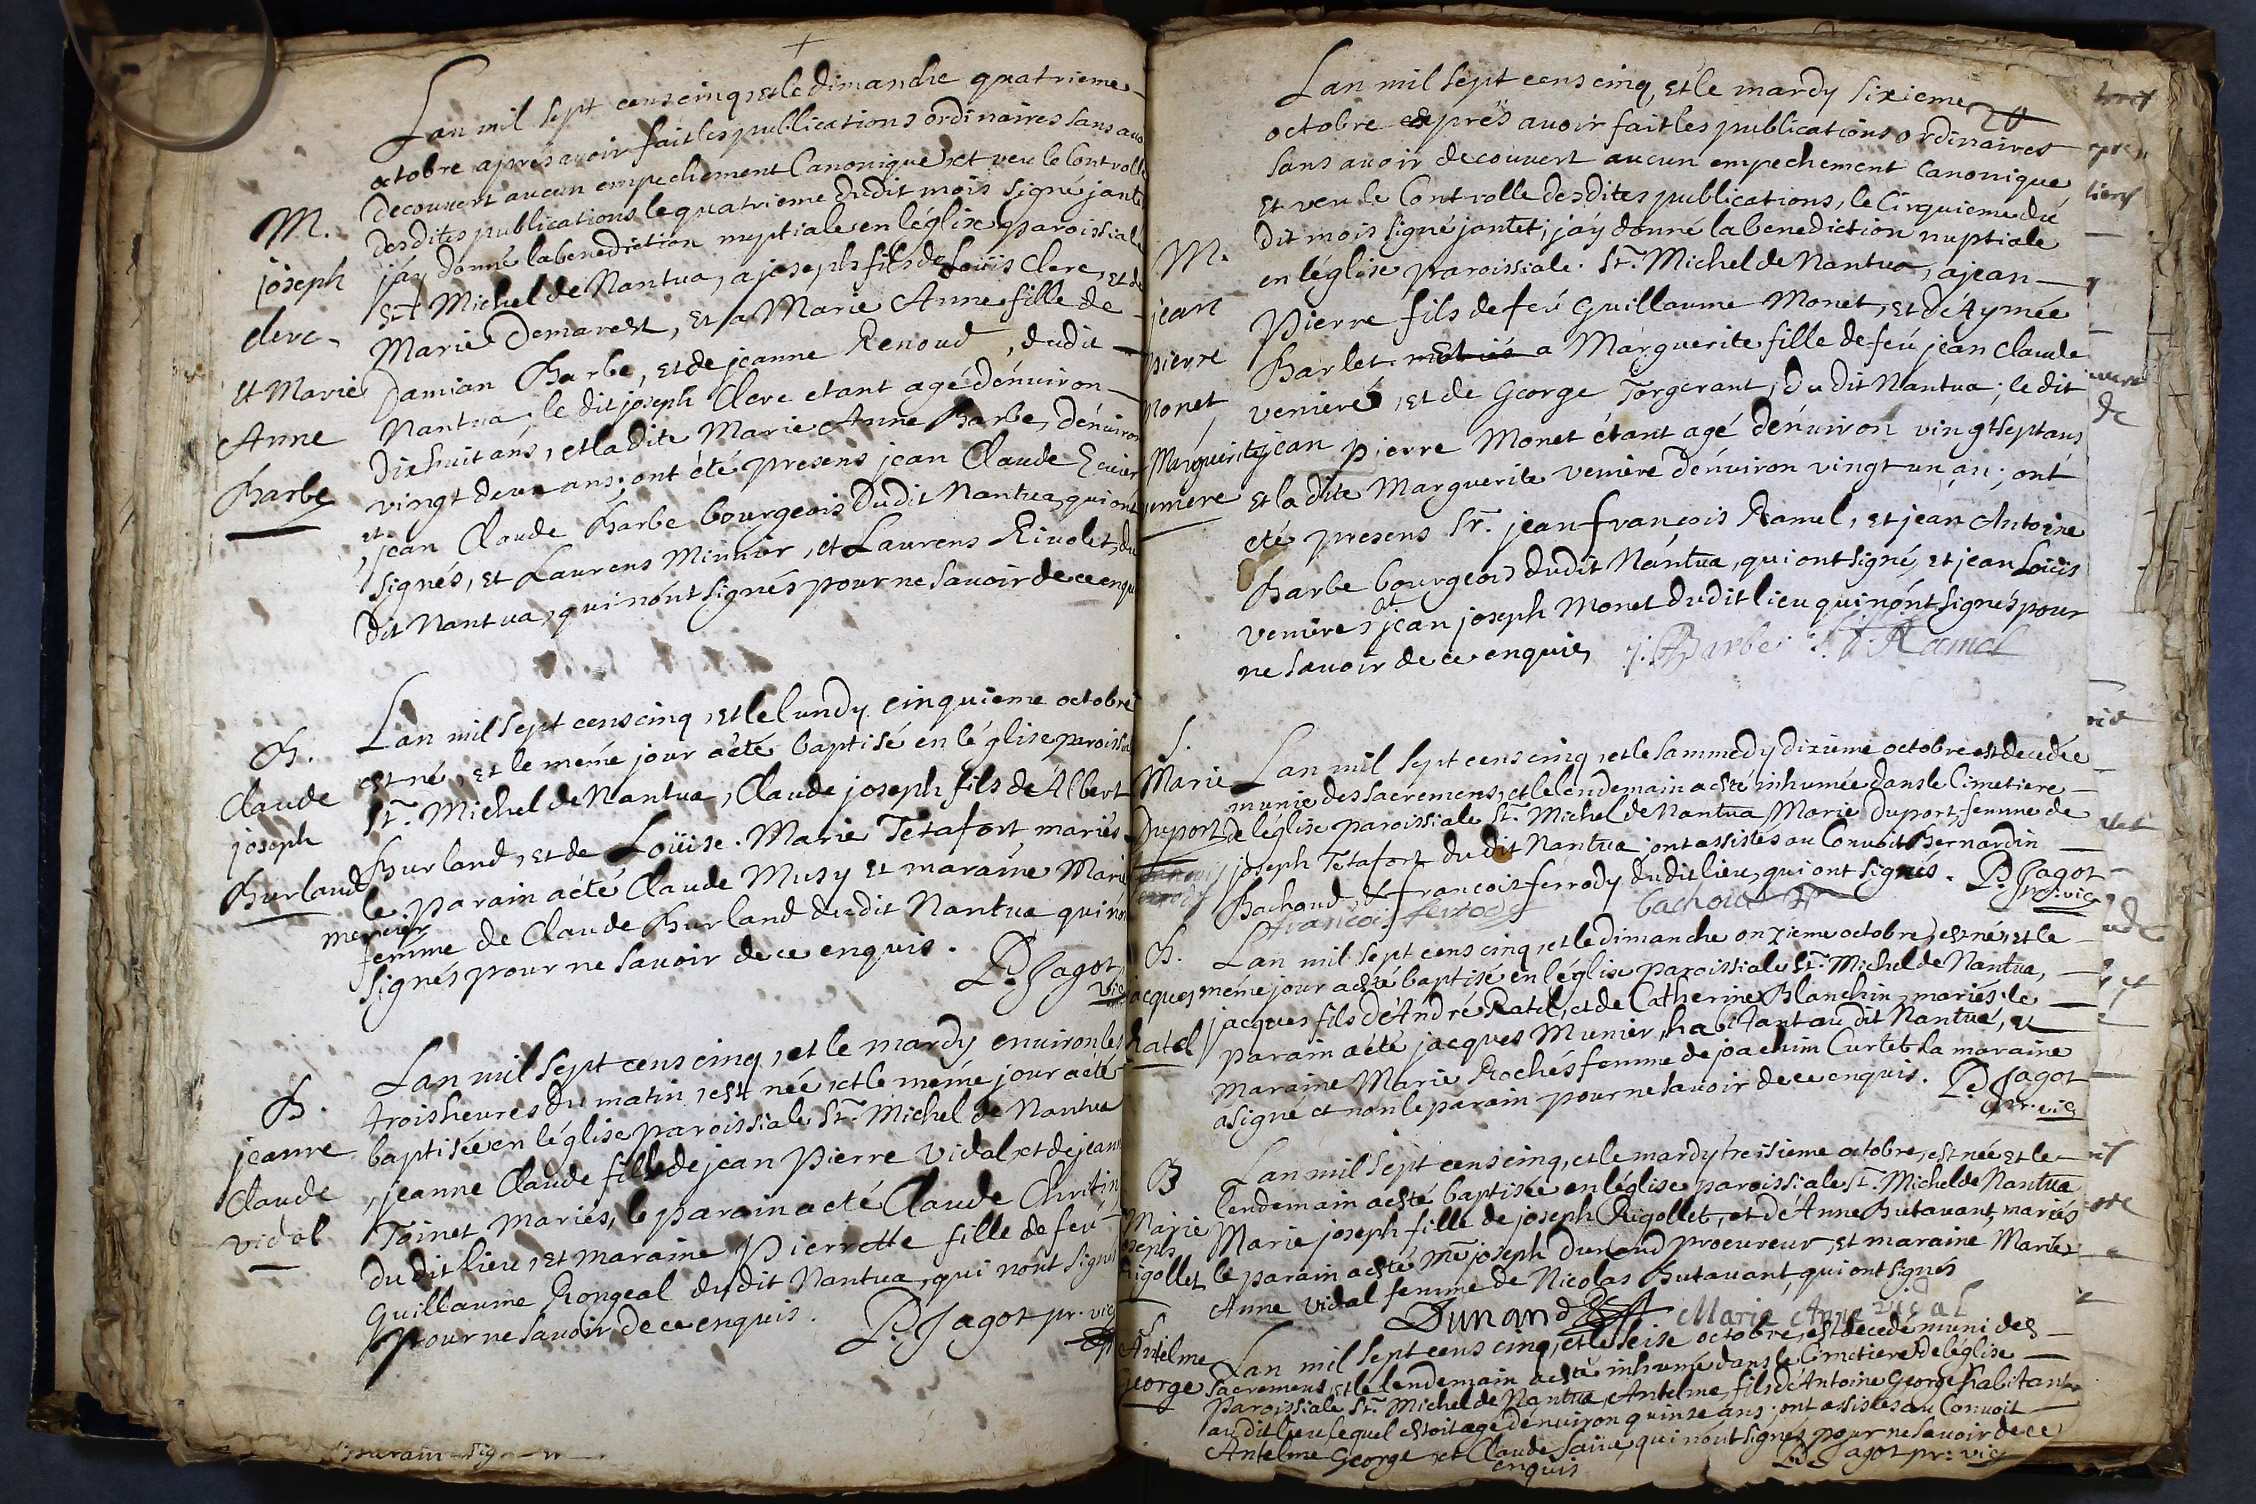 Lan mil sept cens cinq, et le dimanche quatrieme
octobre aprés avoir fait les publications ordinaires sans
decouvert aucun empechement Canonique, et veu le Controlle
desdites publications le quatrieme dudit mois signé
jáy donné la benediction nuptiale en léglise paroissiale
St. Michel de Nantua, a joseph fils de Loüis Clerc, et de
Marie Demarest, et a Marie Anne fille de
Damian Barbe, et de jeanne Renoud, dudit
Nantua, le dit joseph Clerc etant agé dénuiron
Dixhuit ans, et la dite Marie Anne Barbe, dénuiron
vingt deux ans; ont été presens jean Claude
et jean Claude Barbe bourgeois dudit Nantua, qui ont
signés, et Laurens Munier, et Laurens Riuolet, du
dit Nantua, qui nónt signés pour ne savoir de ce enquis
M.
joseph
clerc
et Marie
Anne
Barbe
Lan mil sept cens cinq, et le lundy cinquieme octobre
est né, et le méme jour a été baptisé en léglise
St. Michel de Nantua, Claude joseph fils de Albert
Burland, et de Loüise Marie Tétafort, mariés
le parain a été Claude Musy et maraine Marie
mercier
femme de Claude Burland dudit Nantua qui
signés pour ne savoir de ce enquis.
P. Jagot
vic
B.
Claude
joseph
Burland
Lan mil sept cens cinq, et le mardy enuiron les
trois heures du matin, est née, et le méme jour a été
baptisée en léglise paroissiale St. Michel de Nantua
jeanne Claude fille de jean Pierre Vidal et de
Toinet mariés, le parain a eté Claude Chritin
du dit lieu, et maraine Pierrette fille de feu
Guillaume Rongeal dudit Nantua, qui nónt signés
pour ne savoir de ce enquis. P. Jagot pr. vic
B.
jeanne
Claude
vidal
Lan mil sept cens cinq, et le mardy sixieme
octobre aprés avoir fait les publications ordinaires
sans avoir decouvert aucun empechement canonique
et veu le Controlle desdites publications, le Cinquieme du
dit mois signé jantet, jáy donné la benediction nuptiale
en léglise paroissiale St. Michel de Nantua, a jean
Pierre fils de feu Guillaume Monet, et de Aymée
Barlet a Marguerite fille de feu jean Claude
veniere, et de George Torgerant, du dit Nantua; le dit
jean Pierre Monet étant agé dénuiron vingt sept ans
et la dite Marguerite veniere dénuiron vingt un an; ont
eté presens Sr. jean françois Ramel, et jean Antoine
Barbe bourgeois dudit Nantua, qui ont signé, et jean Loüis
veniere, et jean joseph Monet dudit lieu qui nónt signés pour
ne savoir de ce enquis j. A Barbe Ramel
M.
jean
pierre
monet
Marguerite
Lan mil sept cens cinq, et le sammedy dixieme octobre est decedée
munie des sacremens, et le lendemain a été inhumée dans le Cimetiere
de léglise paroissiale St. Michel de Nantua, Marie Duport, femme de
joseph Tétafort dudit Nantua, ont assistés au Convoit Bernardin
Bachoud, et francois ferrody dudit lieu, qui ont signés. P. Jagot
pr. vic
francois ferrody bachoud
S.
Marie
Duport
Lan mil sept cens cinq, et le dimanche onzieme octobre, est né, et le
méme jour a été baptisé en léglise paroissiale St. Michel de Nantua,
jacques fils dÁndré Ratel, et de Catherine Blanchin, mariés, le
parain a été jacques Munier, habitant au dit Nantua, et
maraine Marie Rochés femme de joachim Curtet la maraine
a signé et non le parain pour ne savoir de ce enquis. P. Jagot
pr. vic
B.
jacques
Ratel
Lan mil sept cens cinq, et le mardy treisieme octobre, est née et le
lendemain a été baptisée en léglise paroissiale St. Michel de Nantua
Marie joseph fille de joseph Rigollet, et dÁnne Butavant, mariés
le parain a été Me joseph Dunand procureur, et maraine Marie
Anne Vidal femme de Nicolas Butavant, qui ont signés
Dunand Marie Anne vidal
B
Marie
joseph
Rigollet
Lan mil sept cens cinq, et le seise octobre, est decedé muni des
sacremens, et le lendemain a été inhumé dans le Cimetiere de léglise
paroissiale St. Michel de Nantua, Antelme fils dÁntoine George habitant
au dit lieu lequel estoit agé dénuiron quinse ans; ont assistés au Convoit
Antelme George et Claude qui nónt signés pour ne savoir de ce
enquis P. Jagot pr. vic
Antelme
George